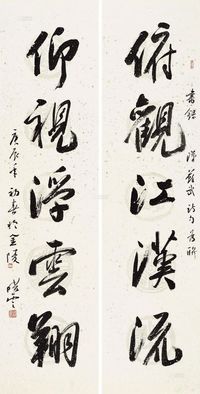 漢蘇武詩句為聯
俯觀江漢流
仰視浮雲翔
庚辰年初春於金陵